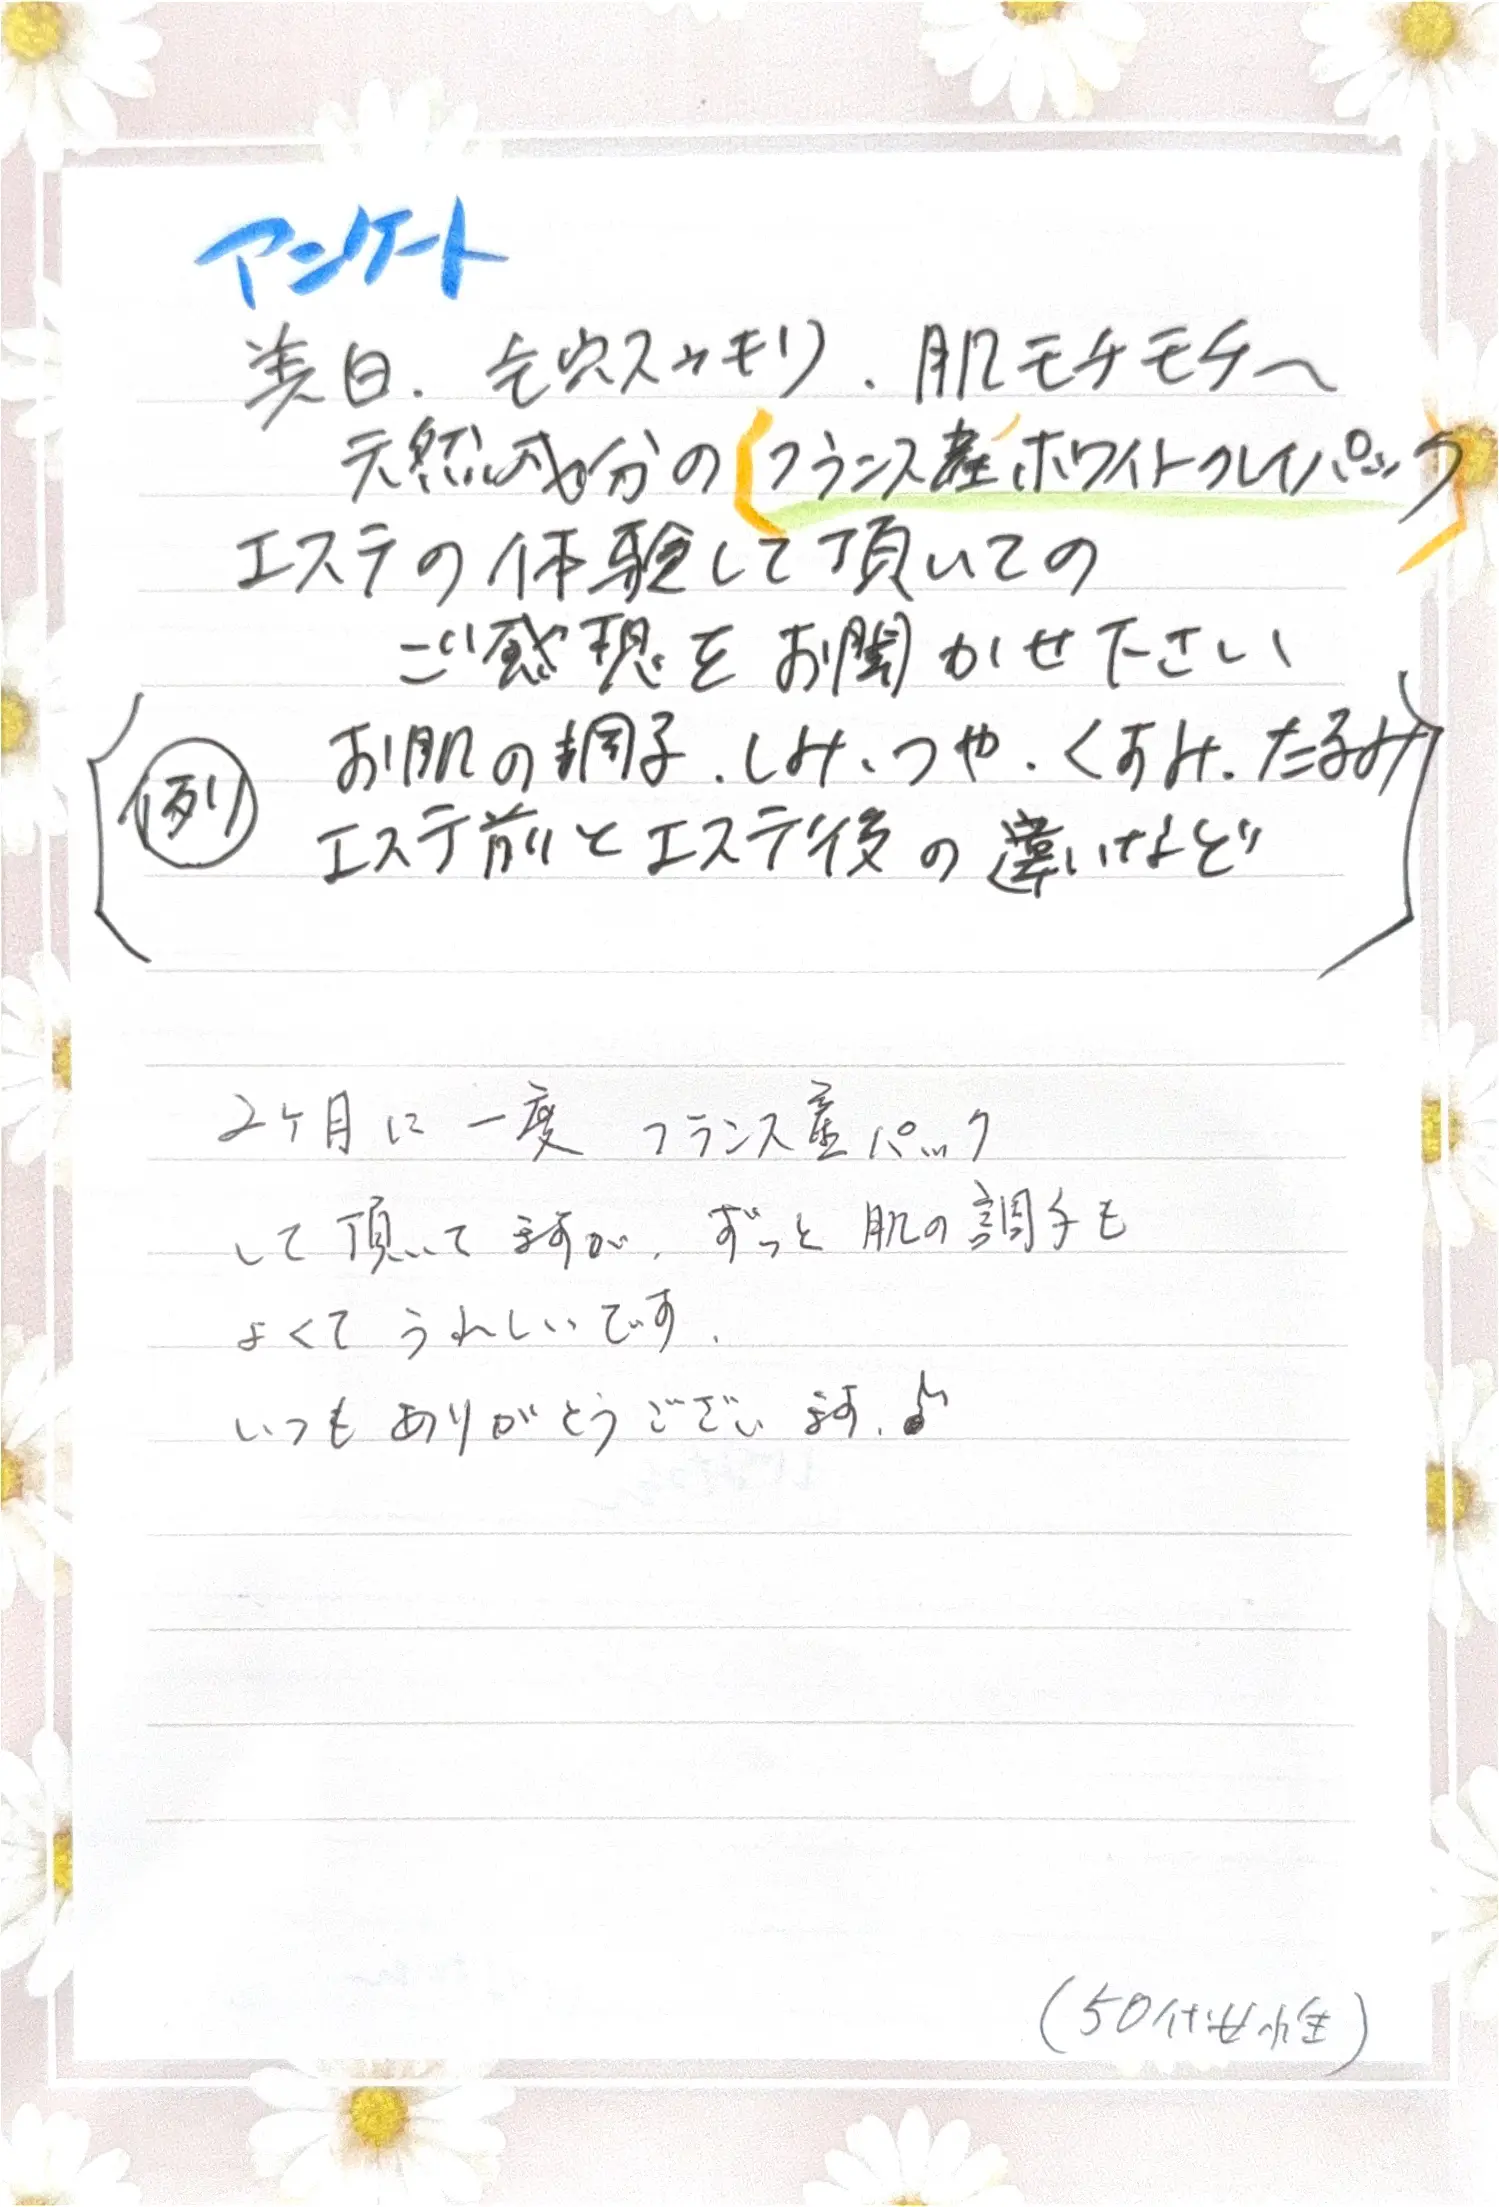 アンケート
美白、毛穴スッキリ、肌モチモチへ
天然成分の(フランス産ホワイトクレイパック)
エステの体験して頂いての
ご感想をお聞かせ下さい
(例) お肌の調子、しみ、つや、くすみ、たるみ
エステ前とエステ後の違いなど
2ケ月に一度 フランス産パック
して頂いてますが、ずっと肌の調子も
よくてうれしいです。
いつもありがとうございます。♪
(50代女性)